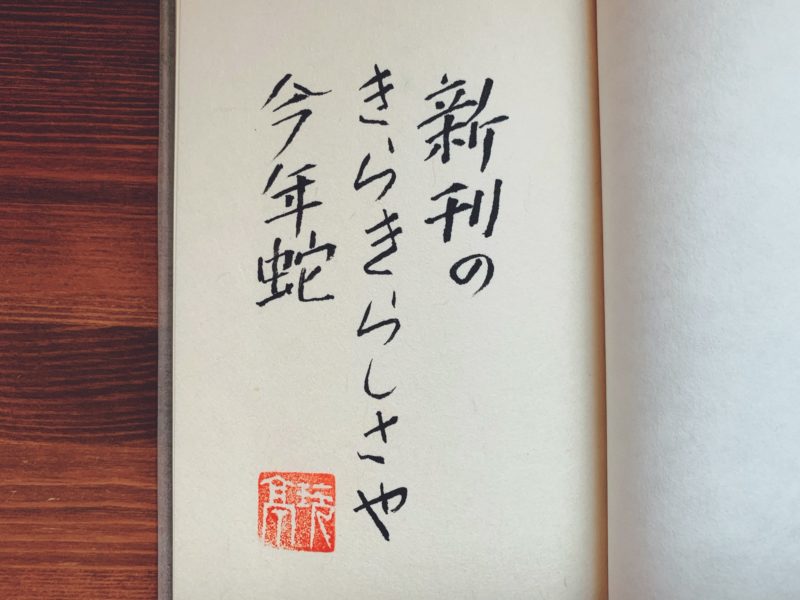 新刊の
きらきらしさや
今年蛇